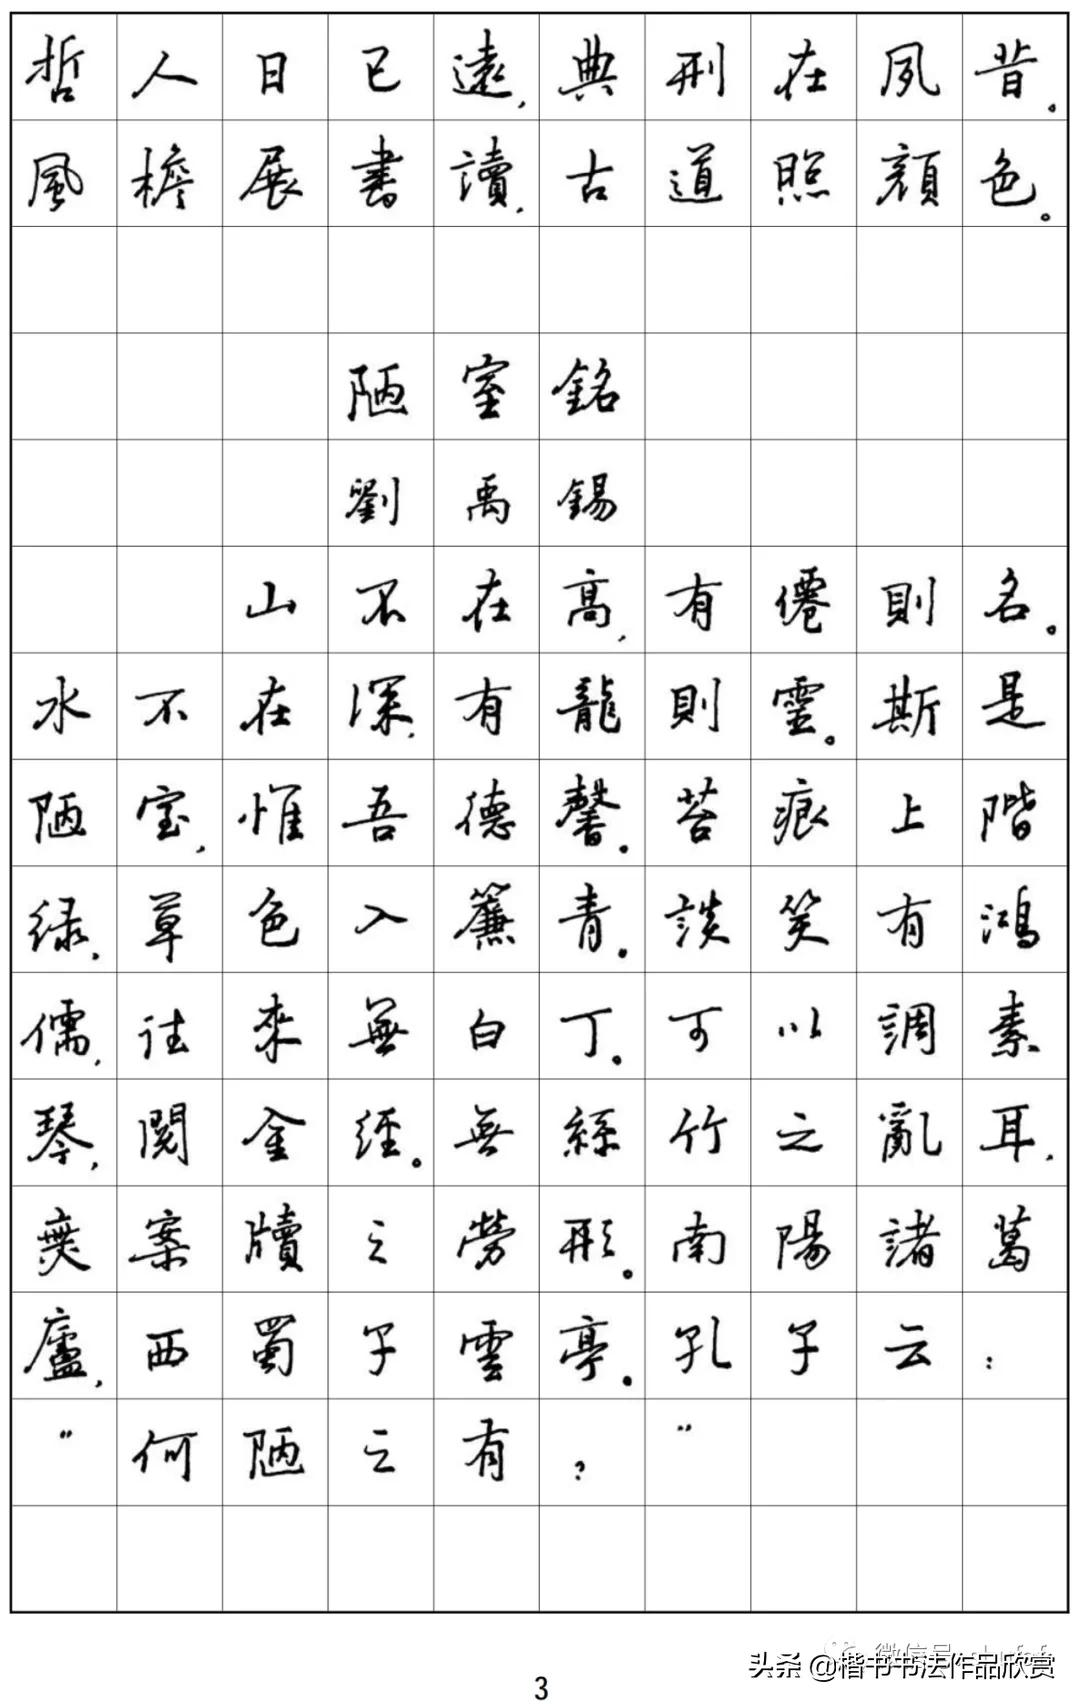 哲人日已遠，典刑在夙昔。
風檐展書讀，古道照顏色。
陋室銘
劉禹錫
山不在高，有僊則名。
水不在深，有龍則靈。斯是
陋室，惟吾德馨。苔痕上階
绿，草色入簾青。談笑有鴻
儒，往來無白丁。可以調素
琴，閱金經。無絲竹之亂耳，
無案牘之勞形。南陽諸葛
廬，西蜀子雲亭。孔子云：
“何陋之有？”
头条 @楷书书法作品欣赏
3